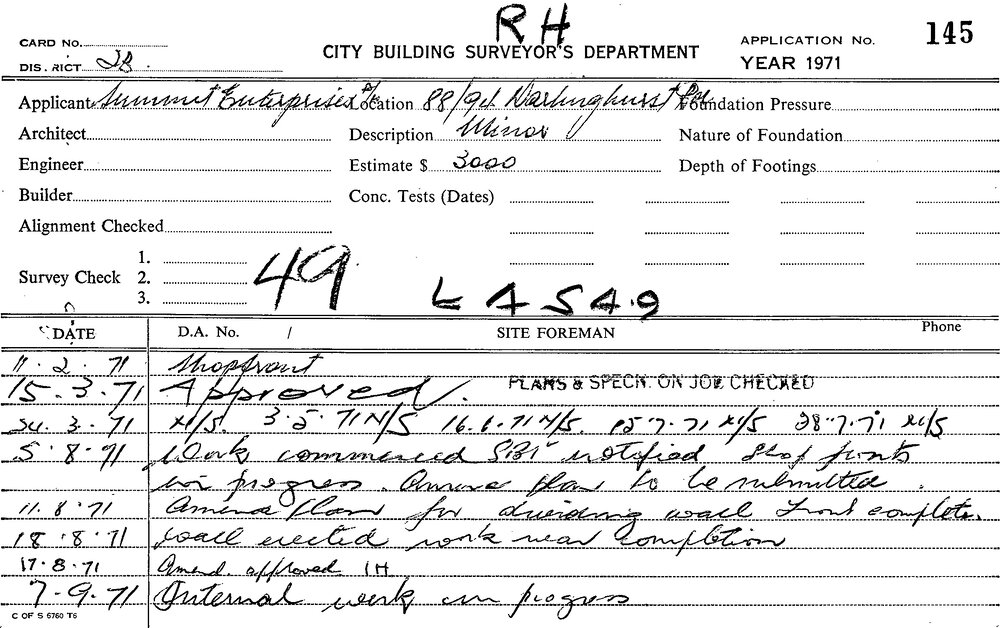 RH
CARD No.
CITY BUILDING SURVEYOR'S DEPARTMENT
APPLICATION No. 145
DISTRICT 2B.
YEAR 1971
Applicant Summit Enterprises P/L Location 88/94 Darlinghurst Rd Foundation Pressure
Architect Description Minor Nature of Foundation
Engineer Estimate $ 3000 Depth of Footings
Builder Conc. Tests (Dates)
Alignment Checked
1.
Survey Check 2. 49
3. L A S 4.9
DATE D.A. No. / SITE FOREMAN Phone
11.2.71 Shopfront
15.3.71 Approved. PLANS & SPECN. ON JOB CHECKED
24.3.71 N/S. 3.5.71 N/S 16.6.71 N/S. 15.7.71 N/S 28.7.71 N/S
5.8.71 Work commenced notified Shop fronts
in progress. Amend plan to be submitted.
11.8.71 Amend plan for dividing wall Front complete.
18.8.71 wall erected work near completion
17.8.71 Amend. approved IH
7-9.71 Internal work in progress
C OF S 6760 T6